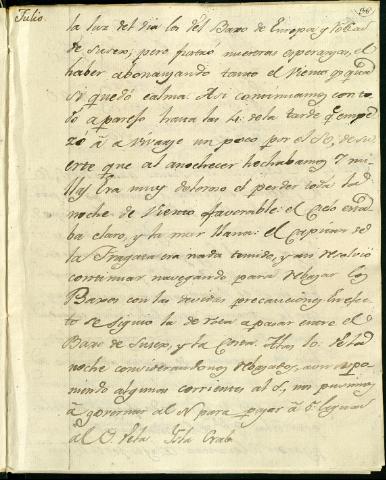 Julio.
136
la luz del dia los del Baxo de Europa y
de Susex; pero frustró nuestras esperanzas, el
haber abonanzando tanto el viento que quas
si quedó calma. Asi continuamos con to
do aparejo hasta las 4. de la tarde qe empe
zo à a vivarse un poco por el SO, de su
erte que al anochecer hechabamos 7 mi
llas. Era muy doloroso el perder toda la
noche de viento favorable: el Cielo esta
ba claro, y la mar llana: el Capitan de
la Fragata era nada temido, y asi resolvió
continuar navegando para rebasar los
Baxos con las devidas precauciones. En efec
to se siguio la derrota a pasar entre el
Baxo de Susex, y la Costa. A las 10. de la
noche considerandonos rebasados, aun supo
niendo algunas corrientes al S, nos pusimos
à governar al N para pasar à 5 leguas
al O. de la Isla Crab